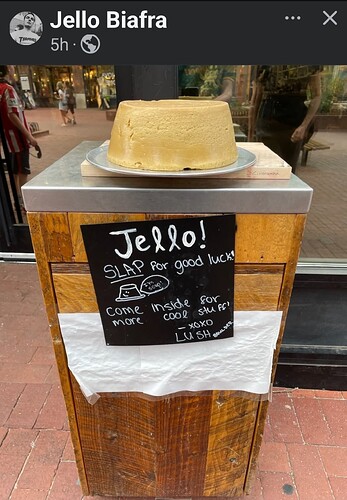 Jello Biafra
5h ·
Jello!
SLAP for good luck!
Come inside for
more cool stuff!
- xoxo
LUSH